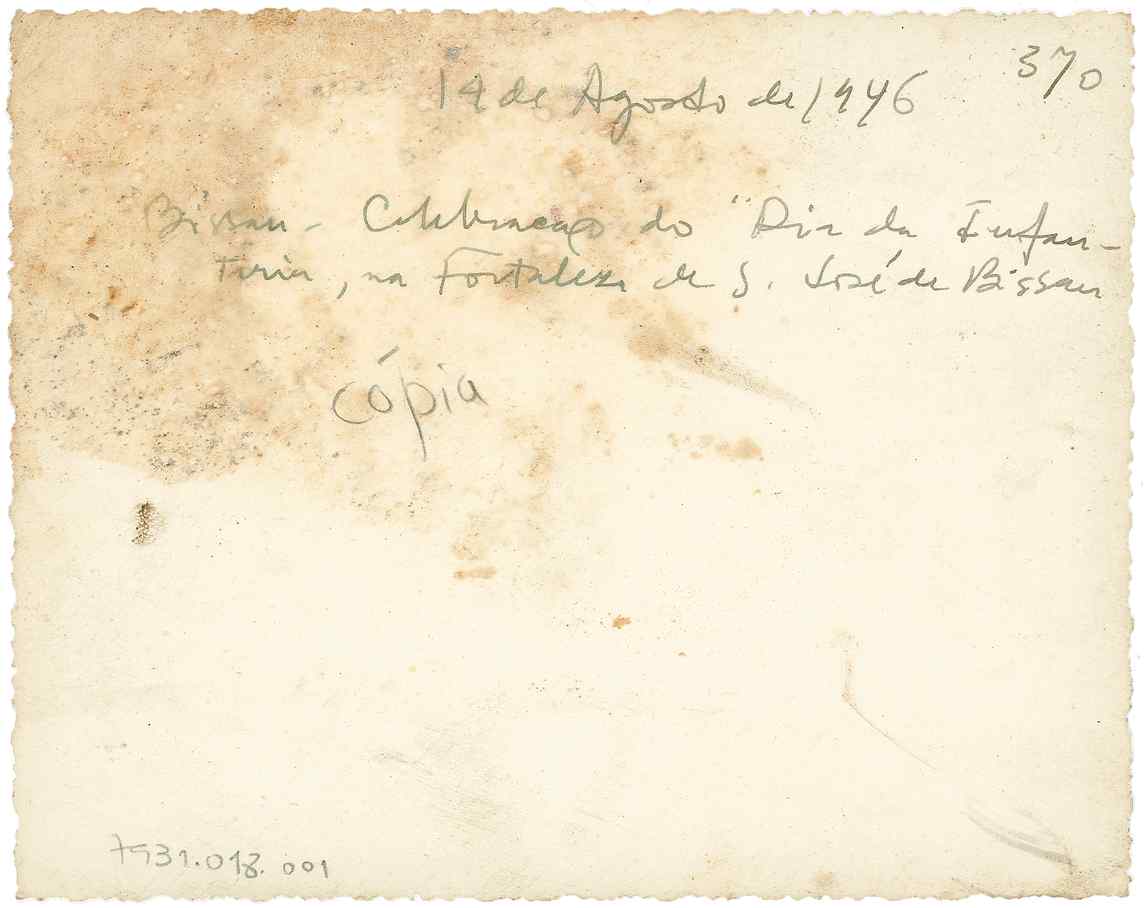 370
14 de Agosto de 1946
Bissau - Celebração do "Dia da Infan-
taria, na Fortaleza de S. José de Bissau
cópia
7931.018.001